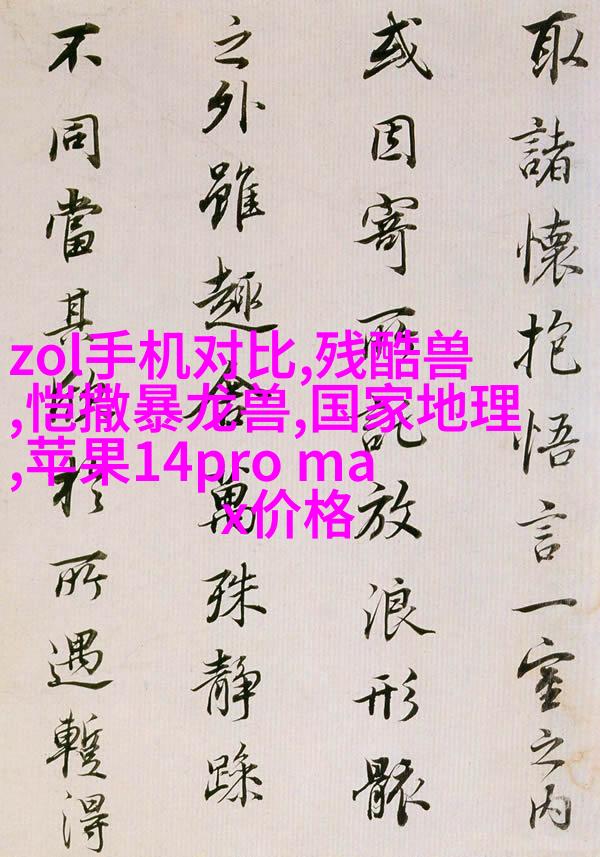 取諸懷抱悟言一室之内
或因寄所託放浪形骸
之外雖趣舍萬殊靜躁
不同當其欣於所遇蹔得
zol手机对比,残酷兽
,恺撒暴龙兽,国家地理
,苹果14pro ma
x价格